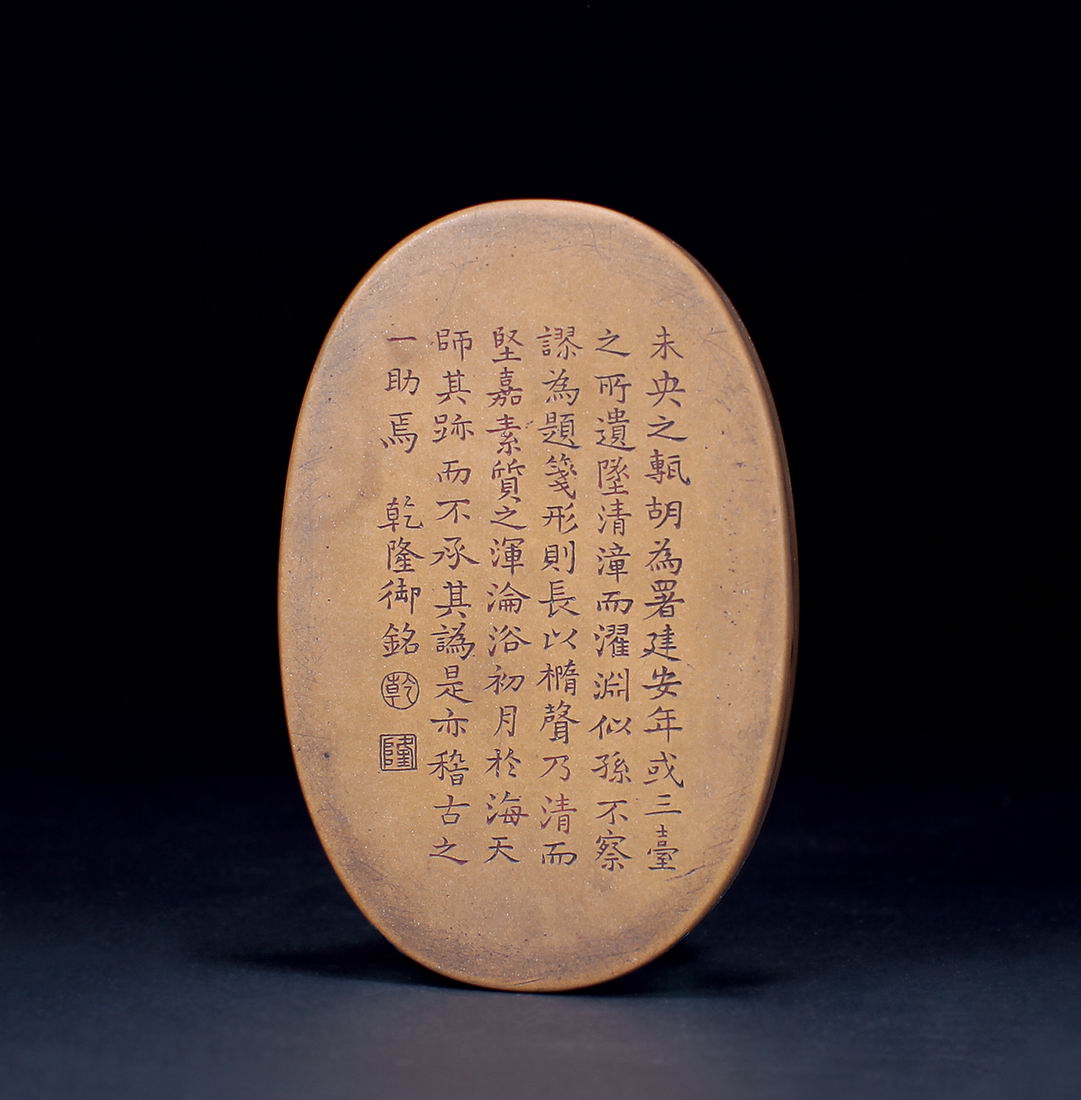 未央之瓻胡為署建安年或三臺
之所遺墜清漳而濯淵似孫不察
謬為題箋形則長以橢聲乃清而
堅嘉素質之渾淪浴初月於海天
師其跡而不承其譌是亦稽古之
一助焉 乾隆御銘 乾 隆